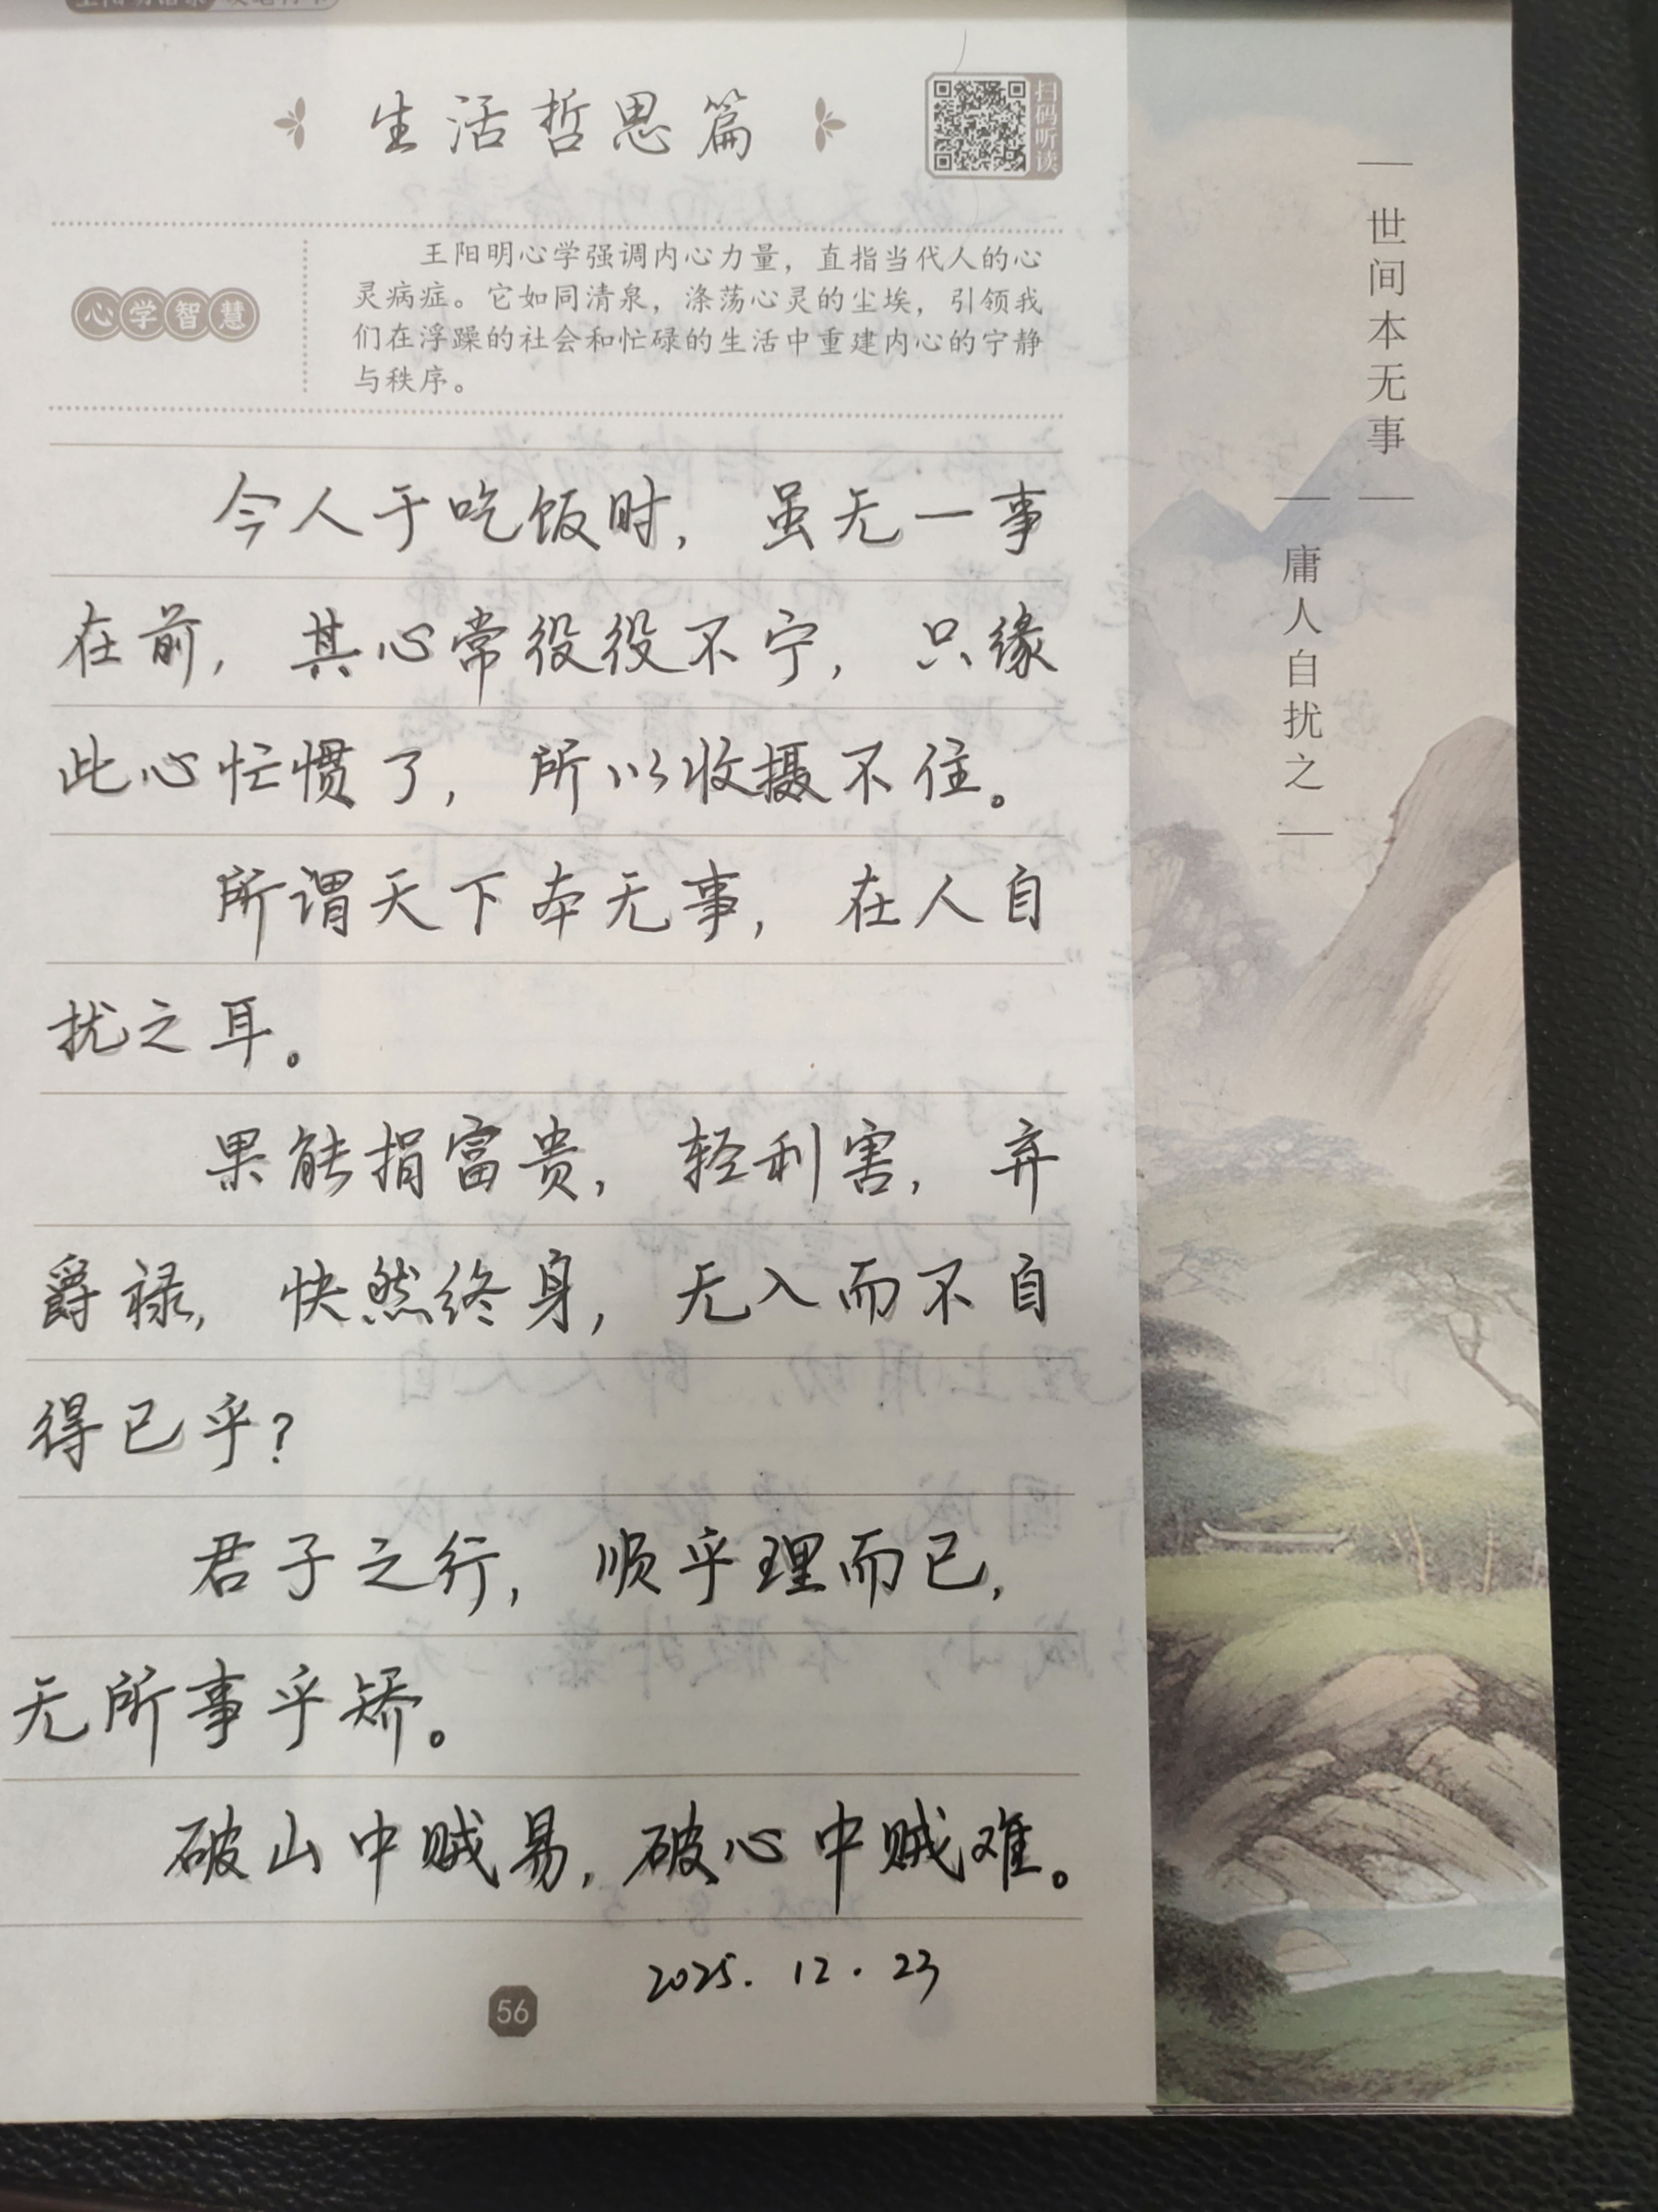 生活哲思篇
扫码听读
心学智慧
王阳明心学强调内心力量，直指当代人的心
灵病症。它如同清泉，涤荡心灵的尘埃，引领我
们在浮躁的社会和忙碌的生活中重建内心的宁静
与秩序。
今人于吃饭时，虽无一事
在前，其心常役役不宁，只缘
此心忙惯了，所以收摄不住。
所谓天下本无事，在人自
扰之耳。
果能捐富贵，轻利害，弃
爵禄，快然终身，无入而不自
得已乎？
君子之行，顺乎理而已，
无所事乎矫。
破山中贼易，破心中贼难。
2025.12.23
56
世间本无事
庸人自扰之